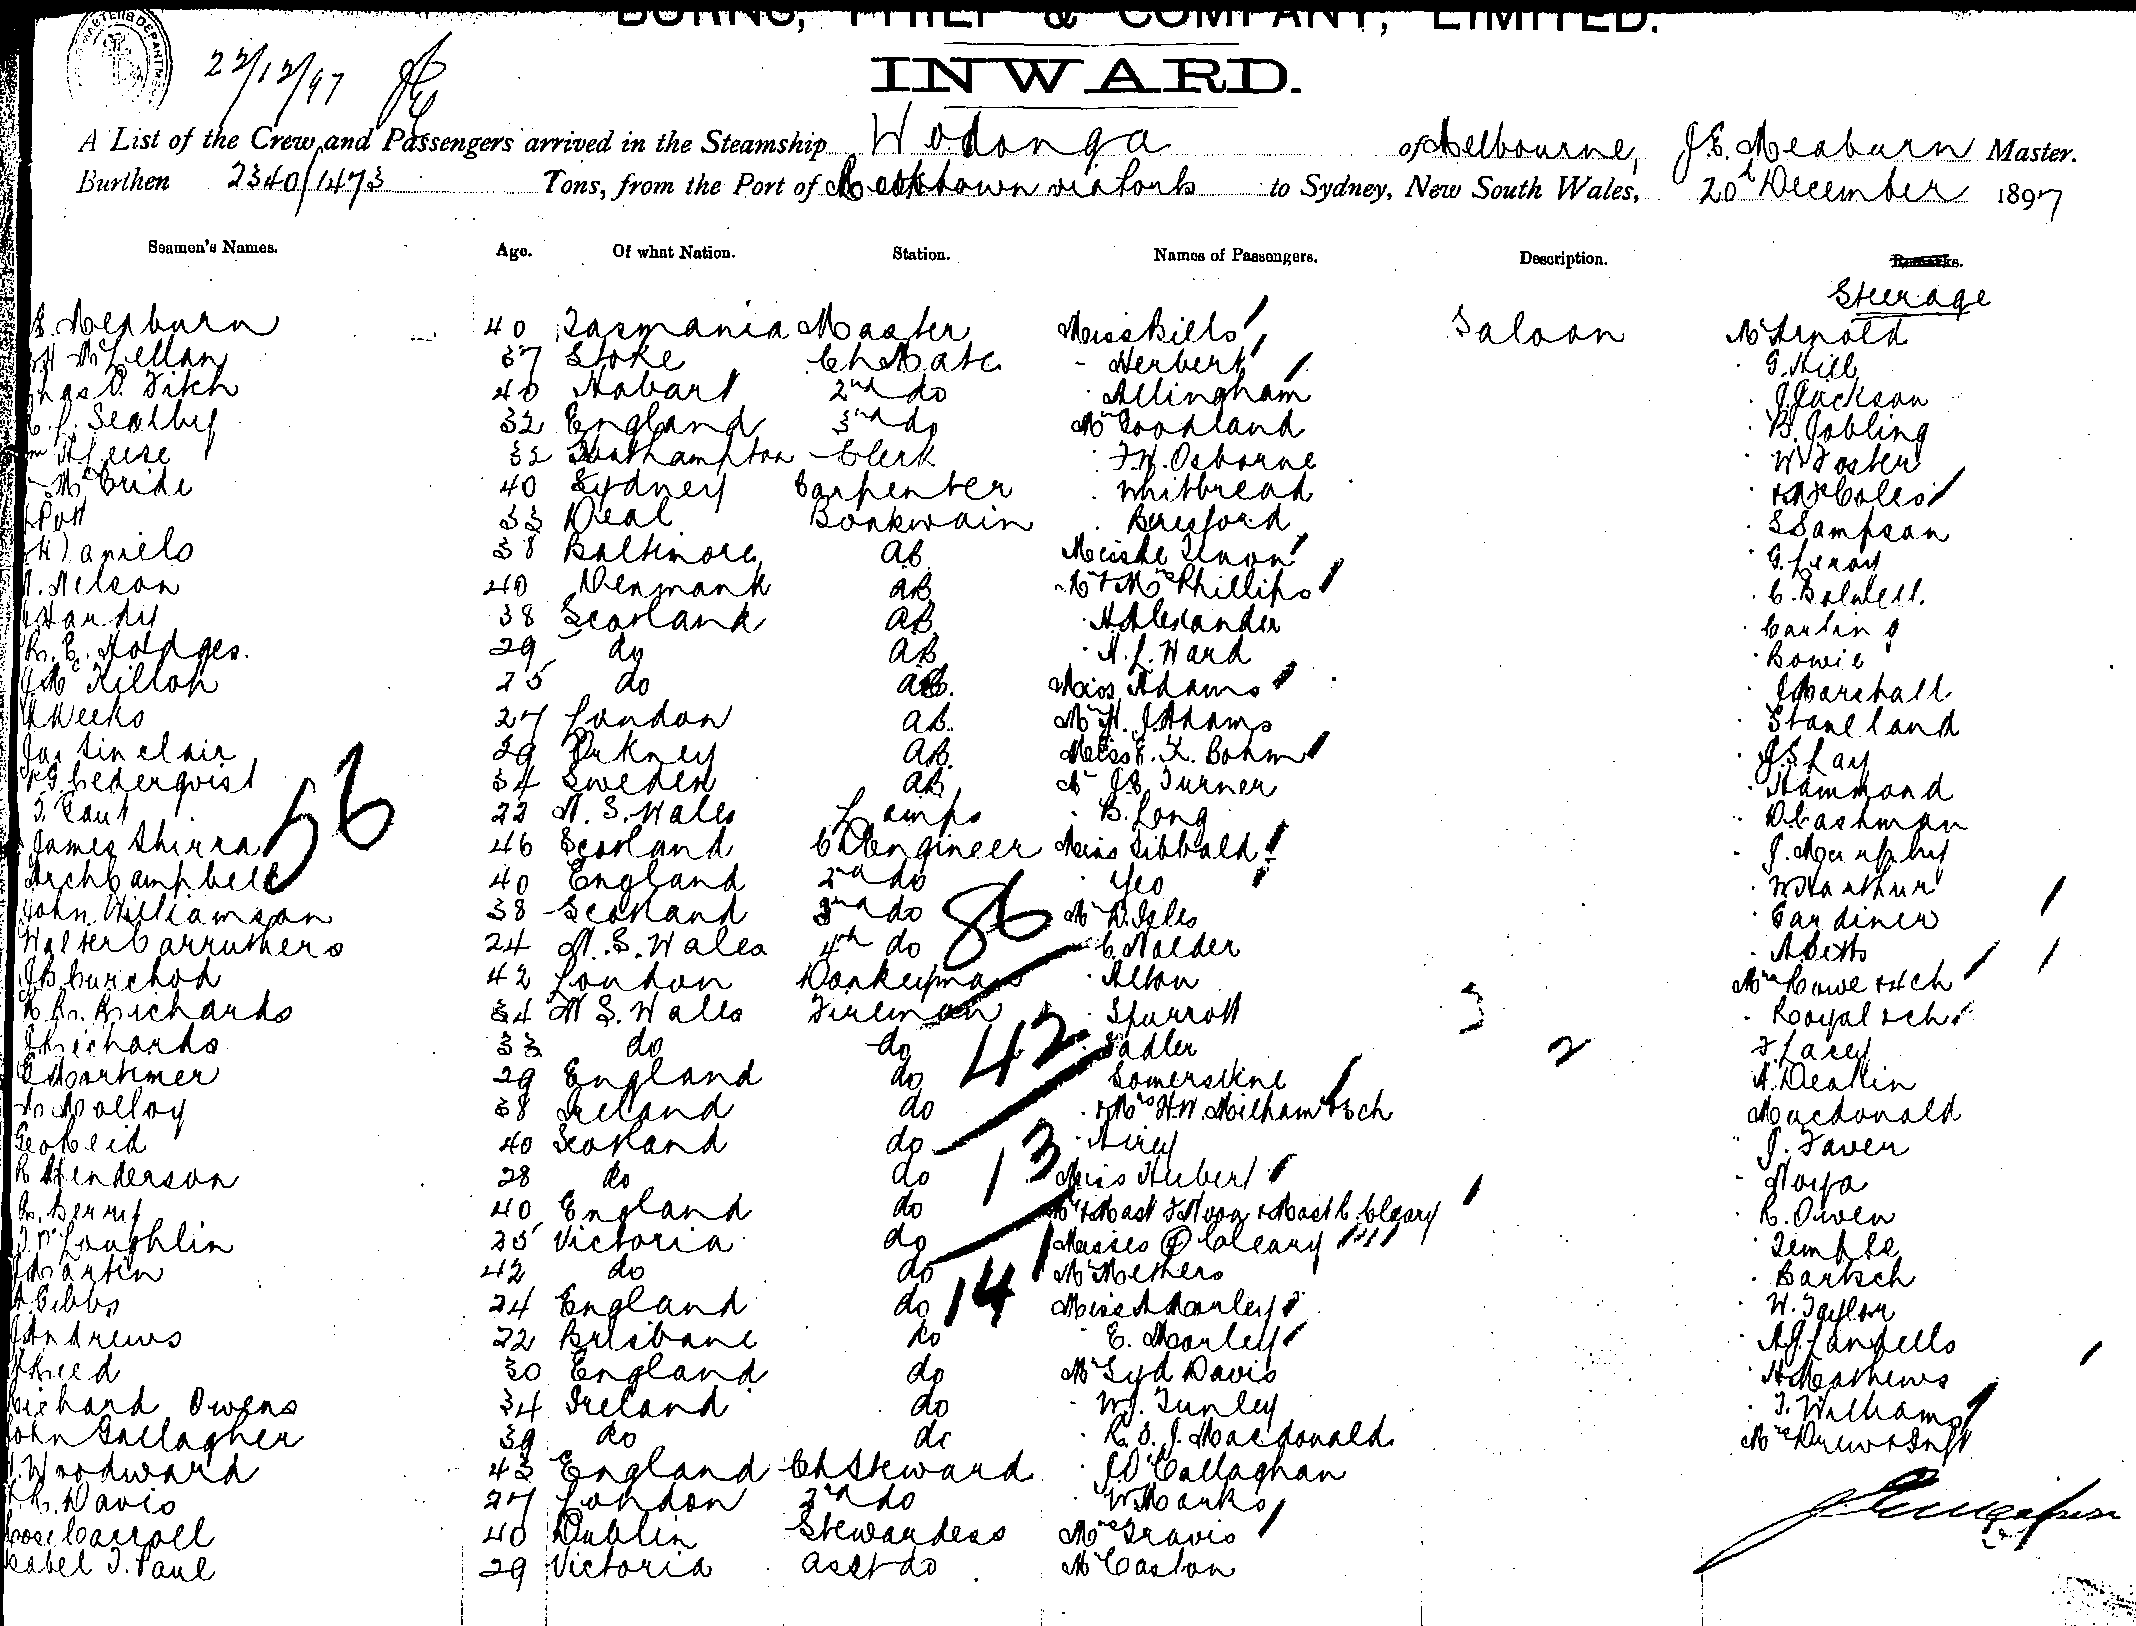 BURNS, PHILP & COMPANY, LIMITED.
22/12/97
INWARD.
A List of the Crew and Passengers arrived in the Steamship Wodonga of Melbourne, J. E. Meaburn Master.
Burthen 2340/1473 Tons, from the Port of Cooktown via ports to Sydney, New South Wales, 20th December 1897
Seamen's Names. Age. Of what Nation. Station. Names of Passengers. Description. Remarks.
Steerage
Meaburn 40 Tasmania Master Miss Bills Saloon Mr Arnold
McLellan 37 Stoke Ch Mate - Herbert G. Hill
Chas O. Fitch 40 Hobart 2nd do Allingham J Jackson
Scalby 32 England 3rd do Mr Goodland B. Jobling
32 Southampton Clerk F. W. Osborne W Foster
McBride 40 Sydney Carpenter Whitbread Coles
Pott 33 Deal Boatswain Beresford S Sampson
Daniels 38 Baltimore AB G. Leroy
Nelson 40 Denmark AB Mr & Mrs Phillips
Hardy 38 Scotland AB H Alexander Carling
R. E. Hodges. 29 do AB H. L. Ward Bowie
25 do AB. Miss Adams J Marshall
Weeks 27 London AB. Mr H. J Adams Staneland
Jas Sinclair 29 Orkney AB. Miss E. F. Bohm J. S. Lay
Cederqvist 34 Sweden AB Mr J. E. Turner Hammond
22 N. S. Wales Lamps B. Long D Cashman
James Shirra 46 Scotland Ch Engineer Miss Sibbald J. Murphy
56
Arch Campbell 40 England 2nd do Yeo W Arthur
John Williamson 38 Scotland 3rd do Mr D. Isles Gardiner
86
Walter Carruthers 24 N. S. Wales 4th do C. Nalder
42 London Donkeyman Alton Mrs Rowe & 4 ch
R. R. Richards 34 N. S. Wales Fireman Sparrott 3 Royal & ch
J Richards 33 do do Sadler 2 F. Lacey
42
C Mortimer 29 England do Somerskine A. Deakin
Molloy 38 Ireland do & Mrs H W. Milham & 3 ch Macdonald
Geo Reid 40 Scotland do Airey J. Taver
R Henderson 28 do do Miss Hubert Noya
13
R. Berry 40 England do R. Owen
O'Loughlin 25 Victoria do Misses Cleary Temple
Martin 42 do do Mr Methers Bartsch
14
Gibbs 24 England do Miss A Morley W. Taylor
J Andrews 22 Brisbane do E. Morley A J. Landells
J Reed 30 England do Mr Syd Davis H Mathews
Richard Owens 34 Ireland do W. J. Tunley T. Williams
John Gallagher 39 do do R. D. J. Macdonald Mrs Drew & Inft
Woodward 43 England Ch Steward J O'Callaghan
R. Davis 27 London 2nd do W Marks
Rose Carroll 40 Dublin Stewardess Mrs Travis
Isabel J. Paul 29 Victoria Asst do Mr Caston